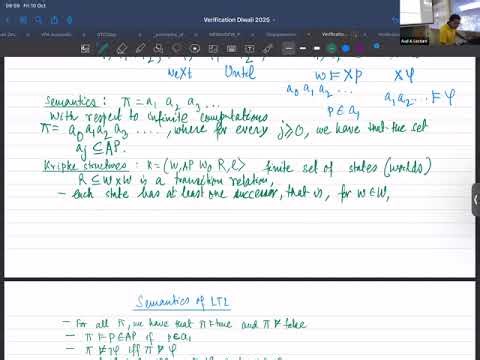 09:09 Fri 10 Oct
Verification Diwali 2025
neXt Until w ⊨ Xp Xφ
a₀ a₁ a₂ ... a₁ a₂ ... ⊨ φ
p ∈ a₁
Semantics : π = a₁ a₂ a₃ ...
With respect to infinite computations
π = a₀ a₁ a₂ a₃ ...., where for every j ⩾ 0, we have that the set
aj ⊆ AP.
Kripke structures : K = (W, AP, W₀, R, ℓ) finite set of states (worlds)
R ⊆ W×W is a transition relation,
- each state has at least one successor, that is, for w ∈ W,
Semantics of LTL
- For all π, we have that π ⊨ true and π ⊭ false
- π ⊨ p ∈ AP iff p ∈ a₁
- π ⊭ ¬φ iff π ⊭ φ